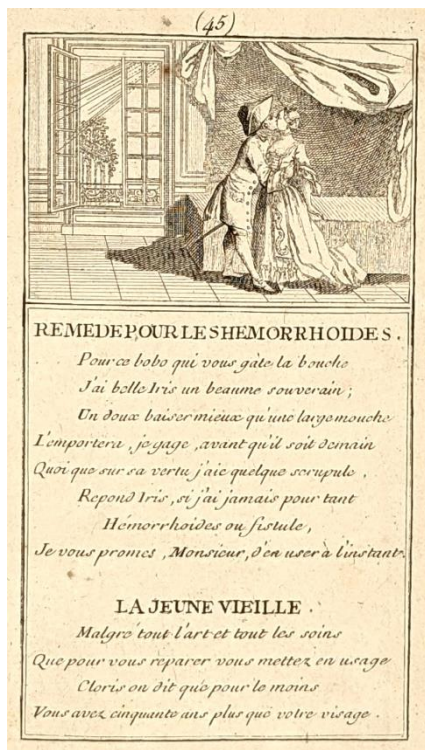 (45)
REMEDE POUR LES HEMORRHOIDES.
Pour ce bobo qui vous gâte la bouche
J'ai belle Iris un beaume souverain ;
Un doux baiser mieux qu'une large mouche
L'emportera, je gage, avant qu'il soit demain
Quoi que sur sa vertu j'aie quelque scrupule,
Repond Iris, si j'ai jamais pour tant
Hémorrhoides ou fistule,
Je vous promes, Monsieur, d'en user à l'instant.
LA JEUNE VIEILLE.
Malgré tout l'art et tout les soins
Que pour vous reparer vous mettez en usage
Cloris on dit que pour le moins
Vous avez cinquante ans plus que votre visage.